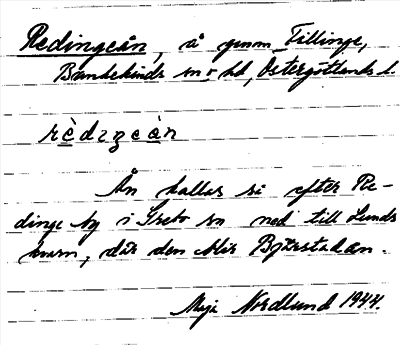 Redingeån, å genom Tillinge,
Bankekinds sn o hd, Östergötlands l.
rèdɩŋeàn
Ån kallas så efter Re-
dinge by i Grebo sn ned till Lunds
kvarn, där den blir Bjärstadån.
Maja Nordlund 1944.